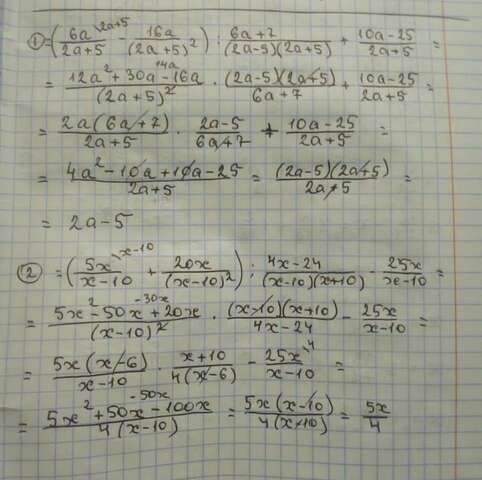 ① = (6a^{\2a+5}/(2a+5) - 16a/(2a+5)²) : (6a+7)/((2a-5)(2a+5)) + (10a-25)/(2a+5) =
= (12a² + 30a - 16a^{14a})/(2a+5)² · ((2a-5)(2a+5))/(6a+7) + (10a-25)/(2a+5) =
= (2a(6a+7))/(2a+5) · (2a-5)/(6a+7) + (10a-25)/(2a+5) =
= (4a² - 10a + 10a - 25)/(2a+5) = ((2a-5)(2a+5))/(2a+5) =
= 2a-5
② = (5x^{\x-10}/(x-10) + 20x/(x-10)²) : (4x-24)/((x-10)(x+10)) - 25x/(x-10) =
= (5x² - 50x + 20x^{-30x})/(x-10)² · ((x-10)(x+10))/(4x-24) - 25x/(x-10) =
= (5x(x-6))/(x-10) · (x+10)/(4(x-6)) - 25x^{\4}/(x-10) =
= (5x² + 50x - 100x^{-50x})/(4(x-10)) = (5x(x-10))/(4(x-10)) = 5x/4